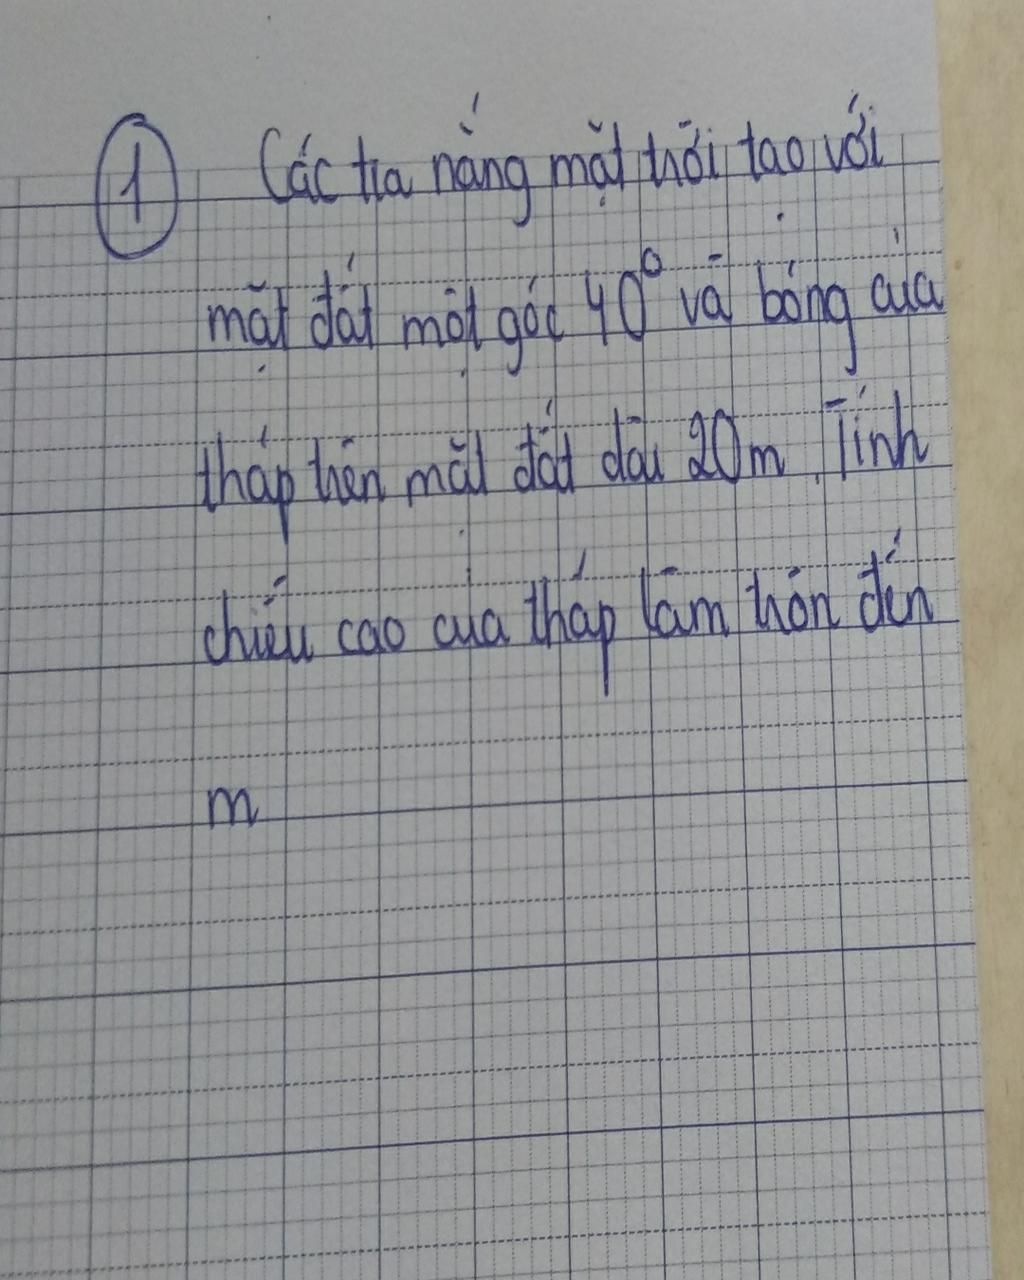 ① Các tia nắng mặt trời tạo với
mặt đất một góc 40° và bóng của
tháp trên mặt đất dài 20m. Tính
chiều cao của tháp làm tròn đến
m